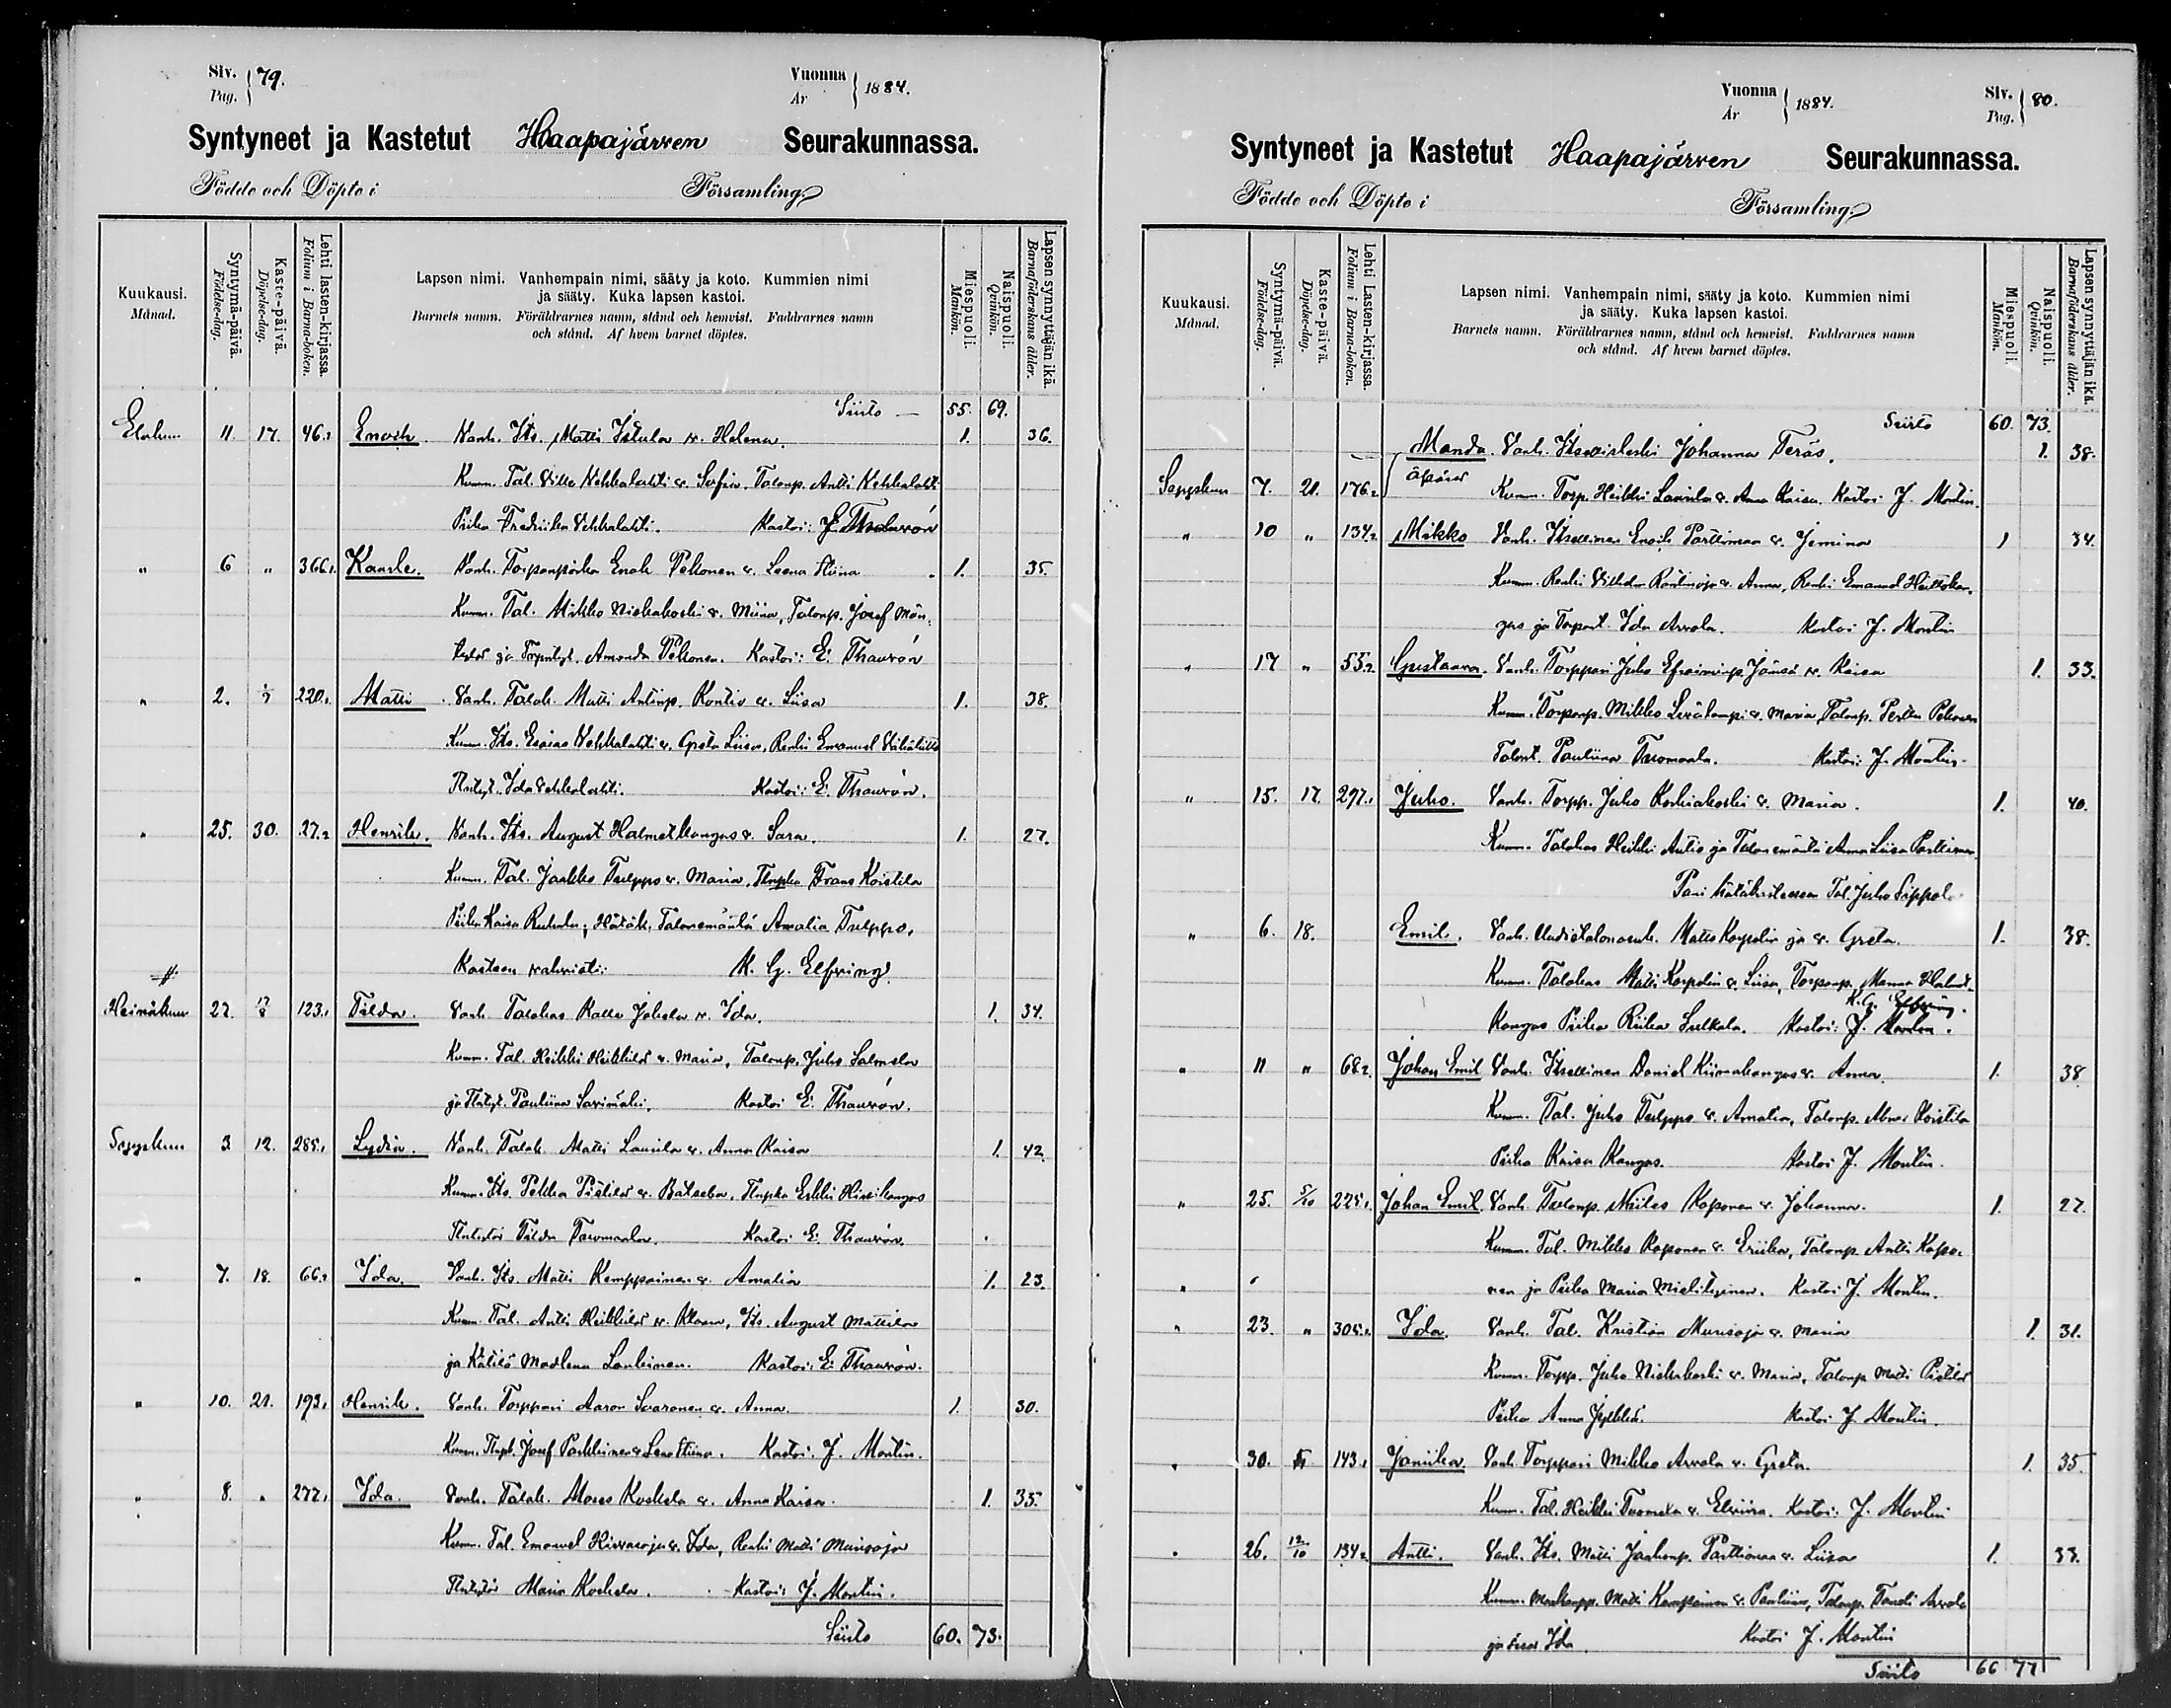 Siv. Pag. } 79.
Vuonna År } 1884.
Syntyneet ja Kastetut Haapajärven Seurakunnassa.
Födde och Döpte i Församling.
Kuukausi. Månad.
Syntymä-päivä. Födelse-dag.
Kaste-päivä. Döpelse-dag.
Lehti lasten-kirjassa. Folium i Barna-boken.
Lapsen nimi. Vanhempain nimi, sääty ja koto. Kummien nimi
ja sääty. Kuka lapsen kastoi.
Barnets namn. Föräldrarnes namn, stånd och hemvist. Faddrarnes namn
och stånd. Af hvem barnet döptes.
Miespuoli. Mankön.
Naispuoli. Qvinkön.
Lapsen synnyttäjän ikä. Barnaföderskans ålder.
Siirto — 55. 69.
Elokuu 11 17. 46.2 Enoch. Vanh. Its. Matti Istula v. Helena. 1. 36.
Kumm. Tal. Ville Vehkalahti v. Sofia, Talonp. Antti Vehkalahti
Piika Fredriika Vehkalahti. Kastoi: E. Thauvón
" 6 " 366.1 Kaarle. Vanh. Torpanpoika Enok Pekonen v. Leena Stiina 1. 35.
Kumm. Tal. Mikko Niskakoski v. Miina, Talonp. Josef
ja Amanda Pekonen. Kastoi: E. Thauvón
" 2. 220.1 Matti Vanh. Talok. Matti Antinp. Kontio v. Liisa 1. 38.
Kumm. Its. Esaias Vehkalahti v. Greta Liisa, Renki Emanuel
Ida Vehkalahti. Kastoi: E. Thauvón.
" 25. 30. 27.2 Henrik. Vanh. Its. August Halmetkangas v. Sara. 1. 27.
Kumm. Tal. Jaakko Tulppo v. Maria, Frans Koistila
Piika Kaisa; Hätäk. Talonemäntä Amalia Tulppo.
Kasteen vahvisti: K. G. Elfving.
Heinäkuu 27. 17/8 123.1 Tilda. Vanh. Talokas Kalle Jokela v. Ida. 1. 34.
Kumm. Tal. Heikki Heikkilä v. Maria, Talonp. Juho Salmela
ja Pauliina Savimäki. Kastoi E. Thauvón.
Syyskuu 3 12. 285.1 Lydia. Vanh. Talok. Matti Laurila v. Anna Kaisa 1. 42.
Kumm. Its. Pekka Pistilä v. Batseba, Erkki Hirsikangas
Tilda Tuomaala. Kastoi E. Thauvón.
" 7. 18. 66.2 Ida. Vanh. Its. Matti Kemppainen v. Amalia 1. 23.
Kumm. Tal. Antti Heikkilä v. Klaara, Its. August Mattila
ja Kätilö Madlena Lankinen. Kastoi: E. Thauvón.
" 10. 21. 193.1 Henrik. Vanh. Torppari Aaron Svaronen v. Anna. 1. 30.
Kumm. Josef Parkkinen v. Leena Stiina. Kastoi: J. Montin.
" 8. " 277.1 Ida. Vanh. Talok. Moses Koskela v. Anna Kaisa. 1. 35.
Kumm. Tal. Emanuel Hirvasoja v. Ida, Renki Matti Murisoja
Maria Koskela. Kastoi: J. Montin.
Siirto 60. 73.
Vuonna År } 1884.
Siv. Pag. } 80.
Syntyneet ja Kastetut Haapajärven Seurakunnassa.
Födde och Döpte i Församling.
Kuukausi. Månad.
Syntymä-päivä. Födelse-dag.
Kaste-päivä. Döpelse-dag.
Lehti Lasten-kirjassa. Folium i Barna-boken.
Lapsen nimi. Vanhempain nimi, sääty ja koto. Kummien nimi
ja sääty. Kuka lapsen kastoi.
Barnets namn. Föräldrarnes namn, stånd och hemvist. Faddrarnes namn
och stånd. Af hvem barnet döptes.
Miespuoli. Mankön.
Naispuoli. Qvinkön.
Lapsen synnyttäjän ikä. Barnaföderskans ålder.
Siirto 60. 73.
Manda. Vanh. Itsellisleski Johanna Teräs. 1. 38.
Syyskuu 7. 21. 176.2 äpärä Kumm. Torp. Heikki Laurila v. Anna Kaisa. Kastoi J. Montin.
" 10 " 134.2 Mikko Vanh. Itsellinen Enok Parttimaa v. Jemina 1 34.
Kumm. Renki Vilhelm v. Anna, Renki Emanuel
ja Ida Arvola. Kastoi J. Montin
" 17 " 55.2 Gustaava. Vanh. Torppari Juho Efraiminp. Jämsä v. Kaisa 1. 33.
Kumm. Torpanp. Mikko v. Maria, Talonp. Perttu Pekonen
Talont. Pauliina Tuomaala. Kastoi: J. Montin.
" 15. 17. 297.1 Juho. Vanh. Torpp. Juho Koskiakoski v. Maria. 1. 40.
Kumm. Talokas Heikki Autio ja Talonemäntä Anna Liisa Parttimaa.
Pani hätäkasteessa Tal. Juho Sippola
" 6. 18. Emil. Vanh. Uudistalonomk. Matts Karpelin ja v. Greta. 1. 38.
Kumm. Talokas Matti Karpelin v. Liisa, Torpanp. Manna Halmet-
K. G. Elfving.
kangas Piika Riika Sulkala. Kastoi: J. Montin.
" 11 " 68.2 Johan Emil Vanh. Itsellinen Daniel Kiimakangas v. Anna. 1. 38
Kumm. Tal. Juho Tulppo v. Amalia, Talonp. Abner Koistila
Piika Kaisa Kangas. Kastoi J. Montin.
" 25. 5/10 225.1 Johan Emil Vanh. Talonp. Niiles Kaponen v. Johanna. 1. 27.
Kumm. Tal. Mikko Kaponen v. Eriika, Talonp. Antti Kapo-
" nen ja Piika Maria Mielityinen. Kastoi J. Montin.
" 23. " 305.2 Ida. Vanh. Tal. Kristian Murisoja v. Maria 1. 31.
Kumm. Torpp. Juho Niskakoski v. Maria, Talonp. Matti Pistilä
Piika Anna Jylkkä. Kastoi J. Montin.
" 30. 143.1 Janiika Vanh. Torppari Mikko Arvola v. Greta. 1. 35.
Kumm. Tal. Heikki Tuomela v. Elviira. Kastoi: J. Montin
" 26. 12/10 134.2 Antti. Vanh. Its. Matti Jaakonp. Parttimaa v. Liisa 1. 33.
Kumm. Matti Kemppainen v. Pauliina, Talonp. Taneli Arvola
ja Ida Kastoi J. Montin
Siirto 66 77